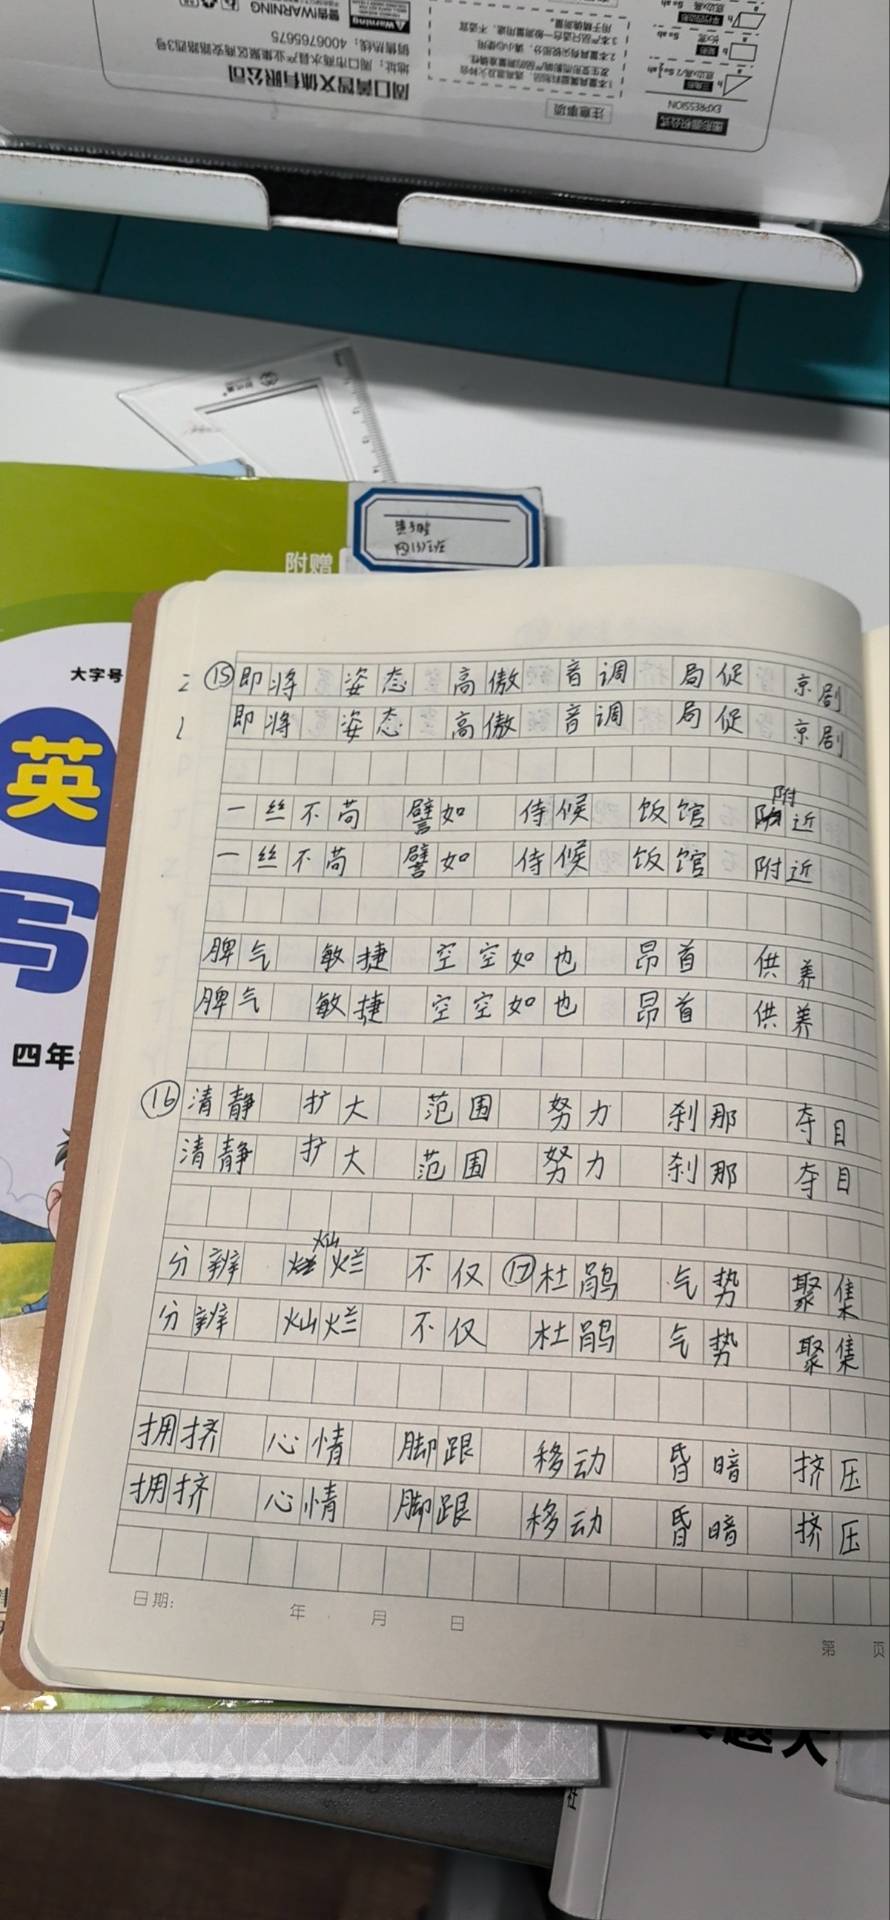 周口青智文体有限公司
地址：周口市商水县产业集聚区商安路西3号
销售热线：4006765675
警告/WARNING
Warning
注意事项
图形面积公式
EXPRESSION
附赠
大字号
英
写
四年
⑮即将 姿态 高傲 音调 局促 京剧
即将 姿态 高傲 音调 局促 京剧
一丝不苟 譬如 侍候 饭馆 附近
一丝不苟 譬如 侍候 饭馆 附近
脾气 敏捷 空空如也 昂首 供养
脾气 敏捷 空空如也 昂首 供养
⑯清静 扩大 范围 努力 刹那 夺目
清静 扩大 范围 努力 刹那 夺目
分辨 灿烂 不仅 ⑰杜鹃 气势 聚集
分辨 灿烂 不仅 杜鹃 气势 聚集
拥挤 心情 脚跟 移动 昏暗 挤压
拥挤 心情 脚跟 移动 昏暗 挤压
日期： 年 月 日
第 页